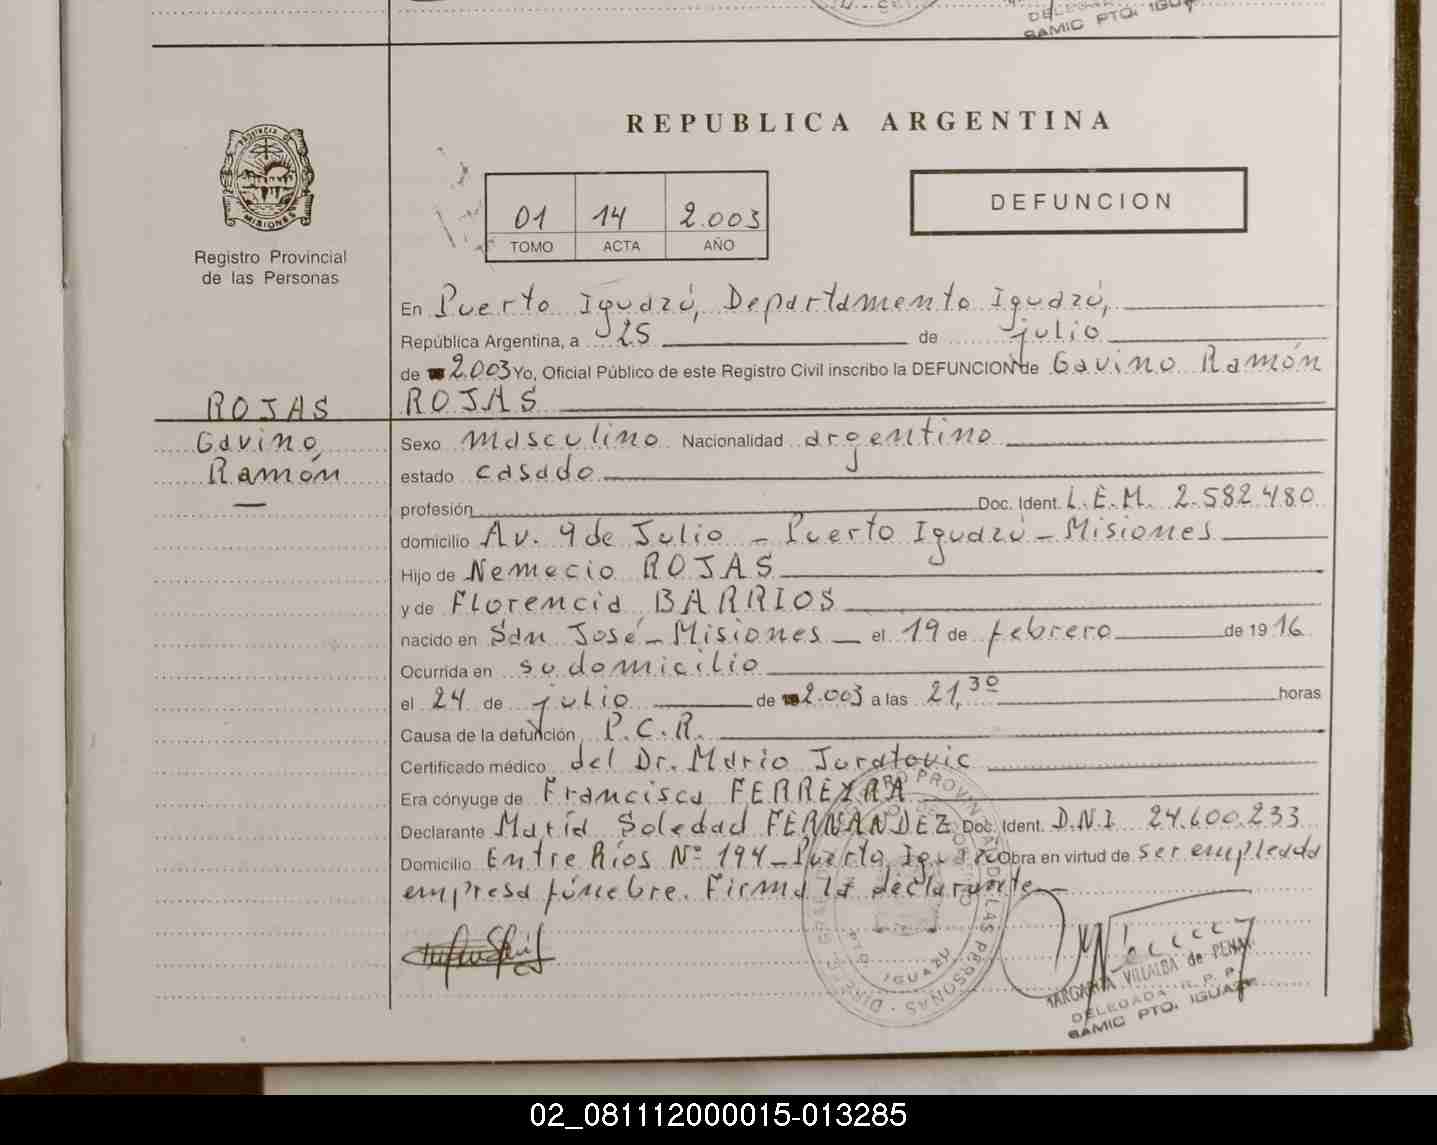 DELEGADA
SAMIC PTO. IGUAZU
REPUBLICA ARGENTINA
PROVINCIA DE
MISIONES
Registro Provincial
de las Personas
01 14 2.003
TOMO ACTA AÑO
DEFUNCION
En Puerto Iguazú, Departamento Iguazú,
República Argentina, a 25 de julio
de 2.003 Yo, Oficial Público de este Registro Civil inscribo la DEFUNCION de Gavino Ramón
ROJAS
ROJAS
Gavino,
Ramón
Sexo masculino Nacionalidad argentino
estado casado
profesión Doc. Ident. L.E.M. 2.582.480
domicilio Av. 9 de Julio - Puerto Iguazú - Misiones
Hijo de Nemecio ROJAS
y de Florencia BARRIOS
nacido en San José - Misiones - el 19 de febrero de 1916
Ocurrida en su domicilio
el 24 de julio de 2.003 a las 21,30 horas
Causa de la defunción P.C.R.
Certificado médico del Dr. Mario Juratovic
Era cónyuge de Francisca FERREYRA
Declarante María Soledad FERNANDEZ Doc. Ident. D.N.I 24.600.233
Domicilio Entre Ríos Nº 194 - Puerto Iguazú Obra en virtud de ser empleada
empresa fúnebre. Firma la declarante
PTO. IGUAZU
MARGARITA VILLALBA de PENA
DELEGADA R.P.P.
SAMIC PTO. IGUAZU
02_081112000015-013285